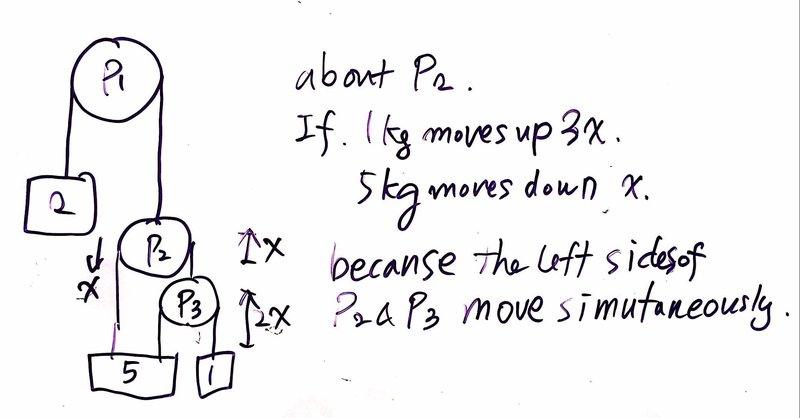 P1
about P2.
If. 1kg moves up 3x.
2
5kg moves down x.
P2
↑x
x
because the left sides of
P3
↑2x
P2 & P3 move simutaneously.
5
1